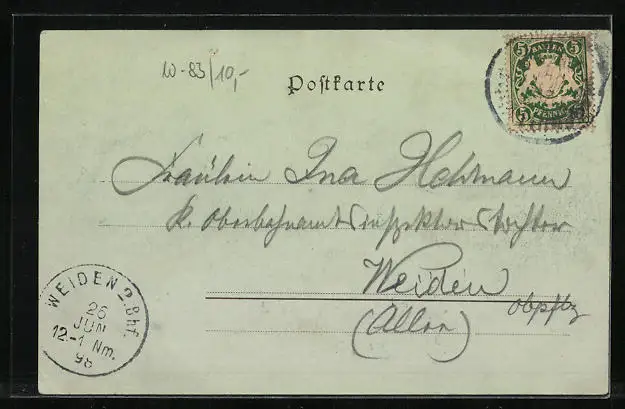 W-83/10,-
Postkarte
5 BAYERN 5
5 PFENNIG 5
Fräulein Ina Hohmann
k. Oberbahnamtsinspektorstochter
Weiden
Obpflz
(Allee)
WEIDEN 2. Bhf.
26
JUN
12.-1 Nm.
98